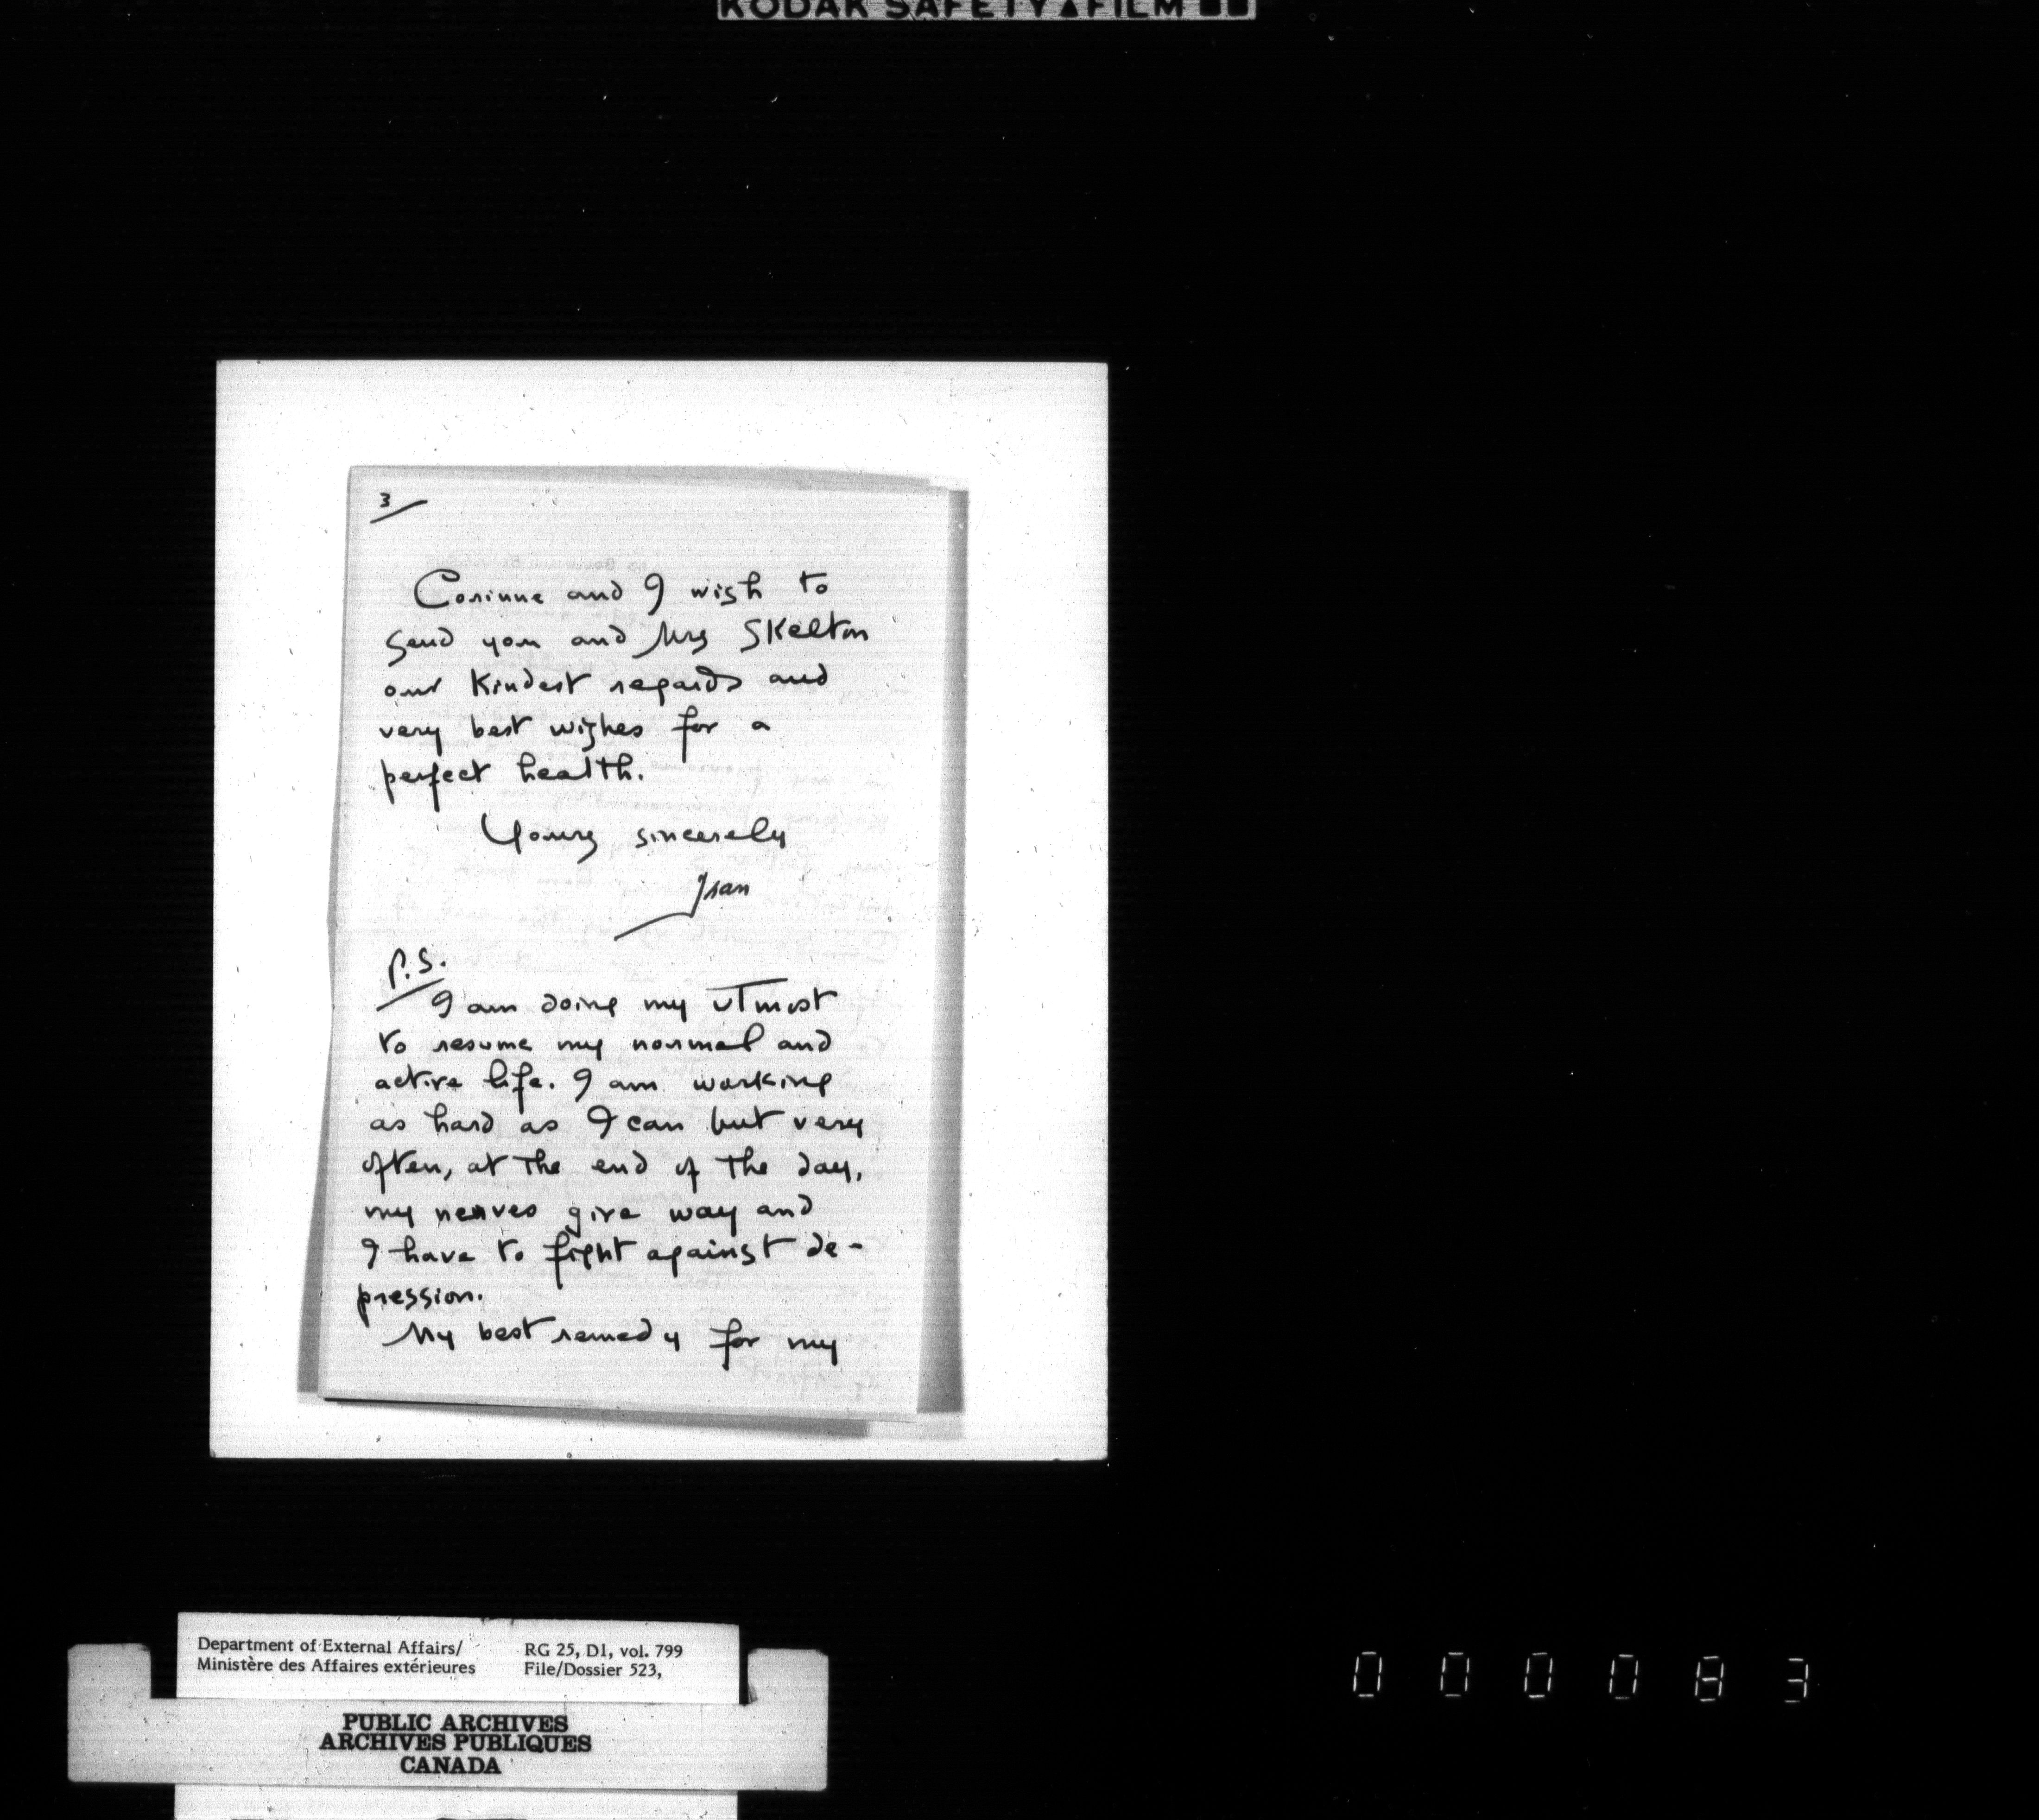 KODAK SAFETY▲FILM
3
Corinne and I wish to
send you and Mrs Skelton
our kindest regards and
very best wishes for a
perfect health.
Yours sincerely
Jean
P.S.
I am doing my utmost
to resume my normal and
active life. I am working
as hard as I can but very
often, at the end of the day,
my nerves give way and
I have to fight against de-
pression.
My best remedy for my
Department of External Affairs/ RG 25, D1, vol. 799
Ministère des Affaires extérieures File/Dossier 523,
PUBLIC ARCHIVES
ARCHIVES PUBLIQUES
CANADA
000083